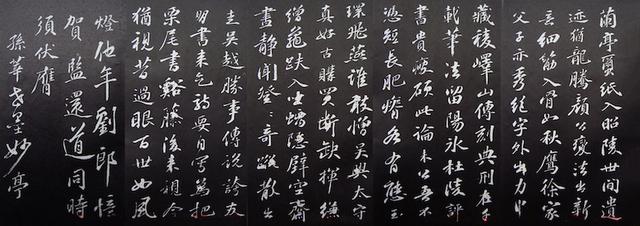 蘭亭繭紙入昭陵世間遺
迹猶龍騰顏公變法出新
意細筋入骨如秋鷹徐家
父子亦秀絕字外出力中
藏稜嶧山傳刻典刑在千
載筆法留陽氷杜陵評
書貴瘦硬此論未公吾不
憑短長肥瘠各有態玉
環飛燕誰敢憎吳興太守
真好古購買斷缺揮縑
繒龜趺入坐螭隱壁空齋
晝靜聞登登奇蹤散出
走吳越勝事傳說誇友
朋書來乞詩要自寫為把
栗尾書谿藤後來視今
猶視昔過眼百世如風
燈他年劉郎憶
賀監還道同時
須伏膺
孫莘老墨妙亭